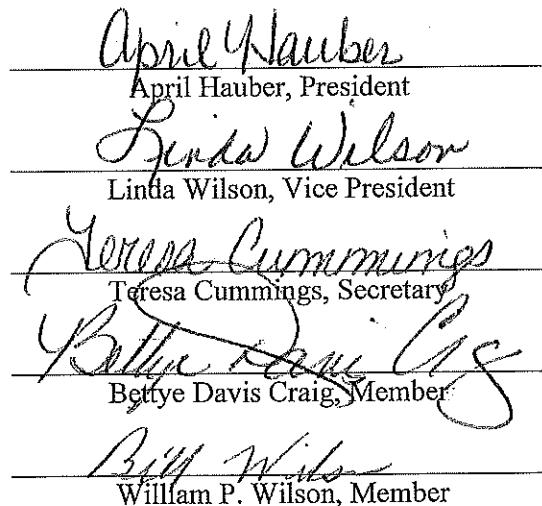 April Hauber
April Hauber, President
Linda Wilson
Linda Wilson, Vice President
Teresa Cummings
Teresa Cummings, Secretary
Bettye Davis Craig
Bettye Davis Craig, Member
Bill Wilson
William P. Wilson, Member